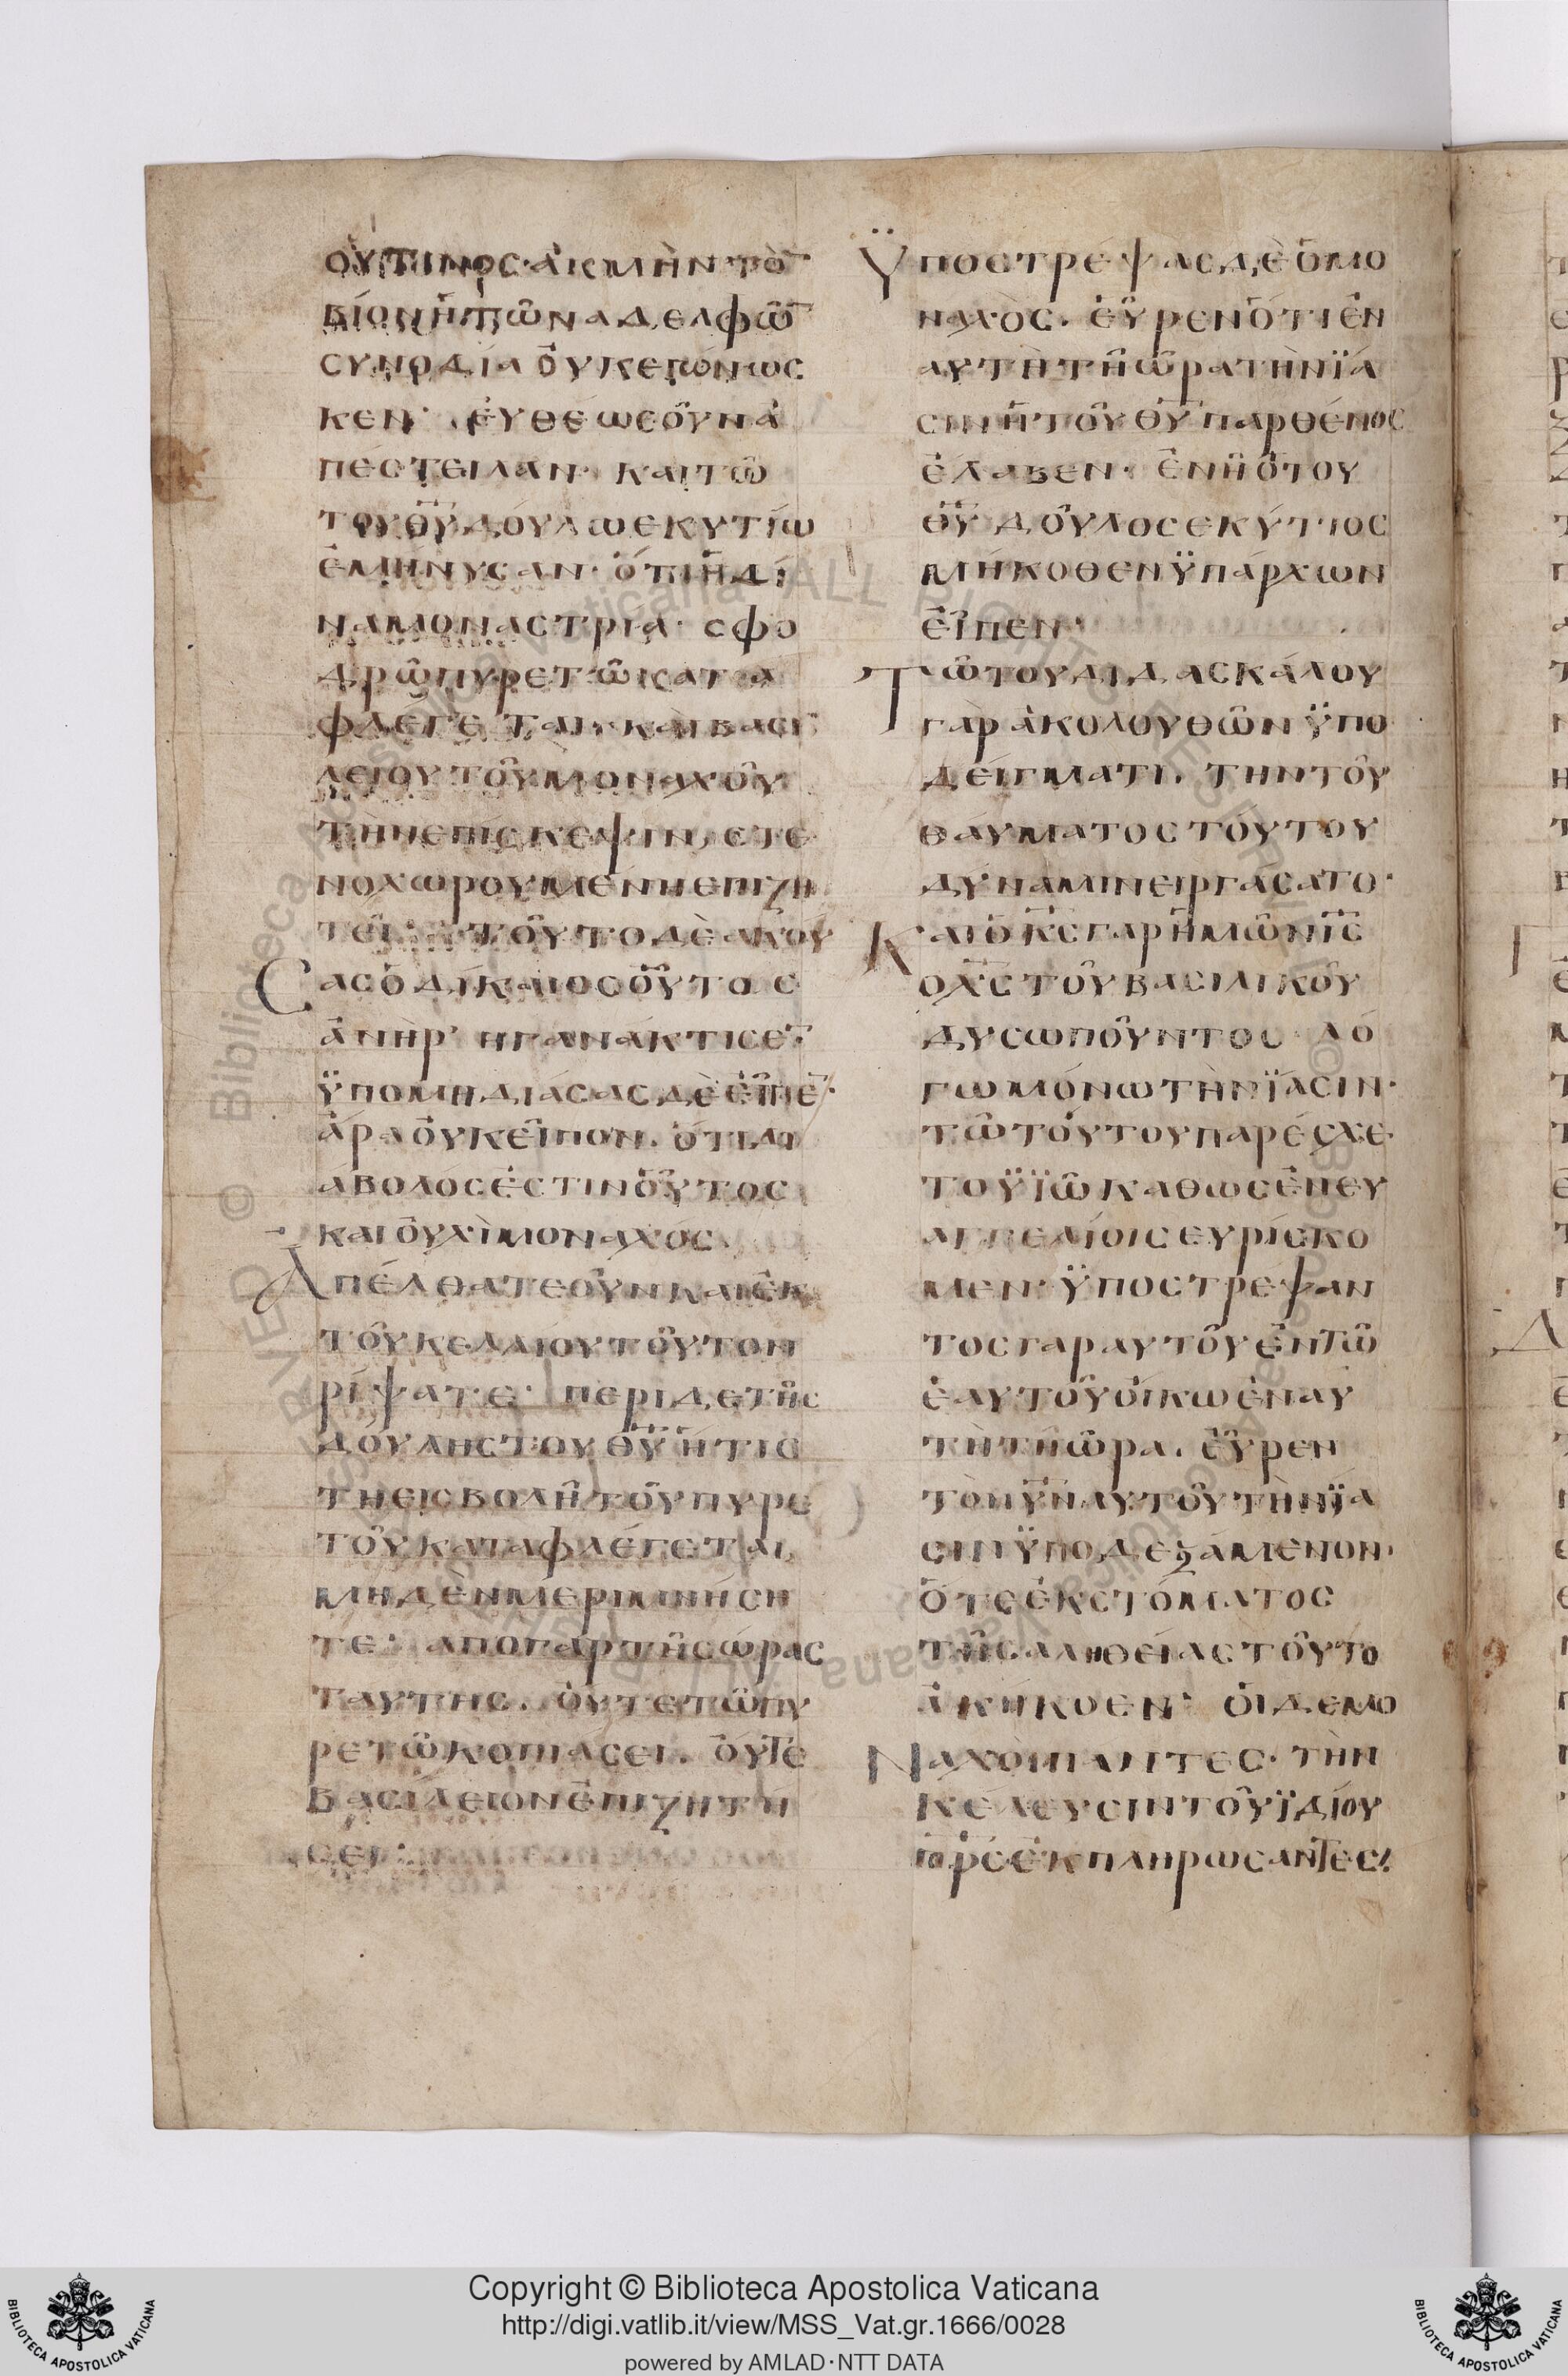 ΟΥΤΙΝΟC·ἈΚΜῊΝ·ΤῸ̅
ΒΊΟΝἩΤΩ͂ΝΑΔΕΛΦΩ̅
CΥΝΟΔΊΑΟΥ̓ΚΕΓΙΝΩC
ΚΕΝ· ἘΥΘΈΩCΟΥ͂ΝἈ
ΠΈCΤΕΙΛΑΝ· ΚΑΙΤΩ͂
ΤΟΥΘ̅Υ̅ΔΟΎΛΩΕΚΥΤΊΩ
ἘΜΉΝΥCΑΝ· ὍΤΙἩΔΙ
ΝΑΜΟΝΑCΤΡΙΑ· CΦΟ
ΔΡΩ͂ΠΥΡΕΤΩ͂ΚΑΤΑ
ΦΛΈΓΕΤΑΙ· ΚΑῚΒΑCΙ
ΛΕΙΟΥΤΟΥ͂ΜΟΝΑΧΟΥ͂
ΤῊΝΕΠΊCΚΕΨΙΝ, CΤΕ
ΝΟΧΩΡΟΥΜΈΝΗΕΠΙΖΗ
ΤΕΙ͂· ΤΟΥ͂ΤΟΔῈΑΚΟΎ
CΑCὉΔΊΚΑΙΟCΟΥ͂ΤΟC
ἈΝῊΡ· ΗΓΑΝΆΚΤΙCΕ̅·
ΫΠΟΜΗΔΙΆCΑCΔῈΕἾΠΕ̅·
ἈΡΑΟΥ̓ΚΕἾΠΟΝ. ὍΤΙΔΙ
ΆΒΟΛΌCἘCΤΙΝΟΥ͂ΤΟC
ΚΑΙΟΥ̓ΧῚΜΟΝΑΧΌC
ἈΠΈΛΘΑΤΕΟΥ͂ΝΚΑΙἘΚ
ΤΟΥ͂ΚΕΛΛΙΟΥΤΟΥ͂ΤΟΝ
ΡΊΨΑΤΕ· ΠΕΡΙΔΕΤΗ͂C
ΔΟΎΛΗCΤΟΥΘ̅Υ̅ἩΤΙC
ΤΗΕΙCΒΟΛΗ͂ΤΟΥ͂ΠΥΡΕ
ΤΟΥ͂ΚΑΤΑΦΛΈΓΕΤΑΙ,
ΜΗΔῈΝΜΕΡΙΜΝΉCΗ
ΤΕ· ΑΠΟΓΑΡΤΗ͂CΏΡΑC
ΤΑΥΤΗC. ὀΥΤΕΤΩ͂ΠΥ
ΡΕΤΩ͂ΚΟΠΙΑCΕΙ. ΟΥ̓ΤΕ
ΒΑCΊΛΕΙΟΝἘΠΙΖΗΤΉ
CΕΙ·
ΫΠΟCΤΡΈΨΑCΔῈὉΜΟ
ΝΑΧῸC. ἘΥ͂ΡΕΝὍΤΙἘΝ
ΑΥΤῊΤΗ͂ὩΡΑΤῊΝΪΆ
CΙΝἩΤΟΥ͂Θ̅Υ̅ΠΑΡΘΈΝΟC
ἘΛΑΒΕΝ· ἘΝΗ͂ὉΤΟΥ
Θ̅Υ̅ΔΟΥ͂ΛΟCΕΚΎΤΙΟC
ΜΉΚΟΘΕΝΫΠΆΡΧΩΝ
ΕἾΠΕΝ·
ΤΩ͂ΤΟΥΔΙΔΑCΚΆΛΟΥ
ΓᾺΡἈΚΟΛΟΥΘΩ͂ΝΫΠΟ
ΔΕΊΓΜΑΤΙ. ΤΗΝΤΟΥ͂
ΘΑΥΜΑΤΟCΤΟΎΤΟΥ
ΔΎΝΑΜΙΝΕΙΡΓΆCΑΤΟ·
ΚΑΙὉΚ̅C̅ΓΑΡἩΜΩ͂ΝΙ̅C̅
ΟΧ̅C̅ΤΟΥ͂ΒΑCΙΛΙΚΟΥ͂
ΔΥCΩΠΟΥ͂ΝΤΟC ΛΌ
ΓΩΜΌΝΩΤῊΝΪΆCΙΝ·
ΤΩ͂ΤΟΎΤΟΥΠΑΡΈCΧΕ·
ΤΟΫΪΩ͂ΚΑΘΩCἘΝΕΥ
ΑΓΓΕΛΊΟΙCΕΥΡΊCΚΟ
ΜΕΝ· ΫΠΟCΤΡΕΨΑΝ
ΤΟCΓΑΡΑΥΤΟΥ͂ἘΝΤΩ͂
ἙΑΥΤΟΥ͂ΟἸΚΩἘΝΑΥ
ΤῊΤΗὩΡΑ. ΕΥ͂ΡΕΝ
ΤῸΝΥ̅Ν̅ΑΥΤΟΥ͂ΤῊΝΪΑ
CΙΝΫΠΟΔΕΞΆΜΕΝΟΝ·
ὍΤΕἘΚCΤΌΜΑΤΟC
ΤΗ͂CΑΛΗΘΕΊΑCΤΟΥ͂ΤΟ
ἈΚΉΚΟΕΝ· ΟἹΔΕΜΟ
ΝΑΧΟῚΠΑΝΤΕC· ΤῊΝ
ΚΈΛΕΥCΙΝΤΟΥ͂ΪΔΊΟΥ
Π̅Ρ̅C̅ἘΚΠΛΗΡΩCΑΝΤΕC·
Copyright © Biblioteca Apostolica Vaticana
http://digi.vatlib.it/view/MSS_Vat.gr.1666/0028
powered by AMLAD·NTT DATA
BIBLIOTECA APOSTOLICA VATICANA
BIBLIOTECA APOSTOLICA VATICANA